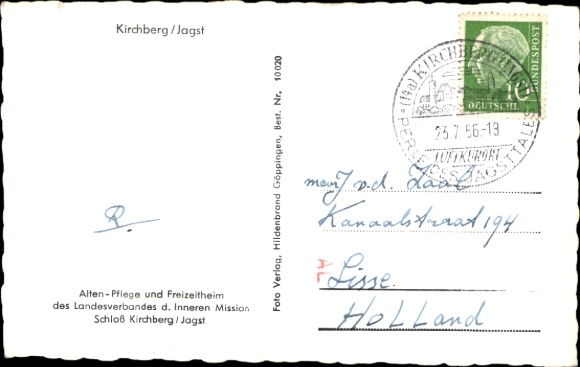 Kirchberg/Jagst
R.
Alten-Pflege und Freizeitheim
des Landesverbandes d. Inneren Mission
Schloß Kirchberg/Jagst
Foto Verlag, Hildenbrand Göppingen, Best. Nr. 10020
10
DEUTSCHE BUNDESPOST
(14a) KIRCHBERG (JAGST)
23.7.56.-18
LUFTKURORT
PERLE DES JAGSTTALES
mevrJ v.d. Zaal
Kanaalstraat 194
Lisse.
HOLLAND